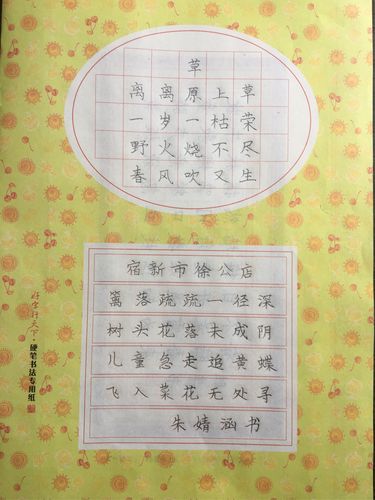 草
离离原上草
一岁一枯荣
野火烧不尽
春风吹又生
宿新市徐公店
篱落疏疏一径深
树头花落未成阴
儿童急走追黄蝶
飞入菜花无处寻
朱婧涵书
好字行天下·硬笔书法专用纸